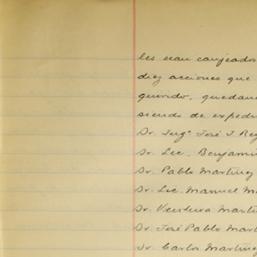 les sean canjeados
diez acciones que
querido, quedan
siendo de expedi
Sr. Ingº José T. Rey
Sr. Lic. Benjamin
Sr. Pablo Martinez
Sr. Lic. Manuel M
Sr. Ventura Marti
Sr. José Pablo Mart
Sr. Carlos Martinez